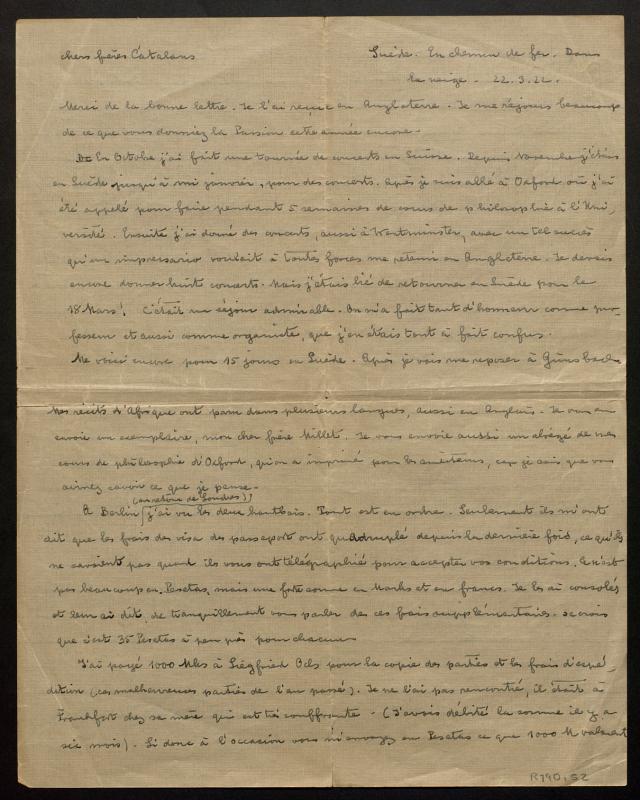 chers frères Catalans
Suède. En chemin de fer. Dans
la neige. 22.3.22.
Merci de la bonne lettre. Je l'ai reçue en Angleterre. Je me réjouis beaucoup
de ce que vous donniez la Passion cette année encore.
En Octobre j'ai fait une tournée de concerts en Suisse. Depuis Novembre j'étais
en Suède jusqu'à mi janvier, pour des concerts. Après je suis allé à Oxford où j'ai
été appelé pour faire pendant 5 semaines de cours de philosophie à l'Uni,
versité. Ensuite j'ai donné des concerts, aussi à Westminster, avec un tel succès
qu'un impressario voulait à toutes forces me retenir en Angleterre. Je devais
encore donner huit concerts. Mais j'étais lié de retourner en Suède pour le
18 Mars! C'était un séjour admirable. On m'a fait tant d'honneur comme pro-
fesseur et aussi comme organiste, que j'en étais tout à fait confus.
Me voici encore pour 15 jours en Suède. Après je vais me reposer à Günsbach.
Mes récits d'Afrique ont paru dans plusieurs langues, aussi en Anglais. Je vous en
envoie un exemplaire, mon cher frère Millet. Je vous envoie aussi un abrégé de mes
cours de philosophie d'Oxford, qu'on a imprimé pour les auditeurs, car je sais que vous
aimez savoir ce que je pense.
(au retour de Londres)
A Berlin j'ai vu les deux hautbois. Tout est en ordre. Seulement ils m'ont
dit que les frais des visa des passeport ont quadruplé depuis la dernière fois, ce qu'ils
ne savaient pas quand ils vous ont télégraphié pour accepter vos conditions. Ce n'est
pas beaucoup en Pesetas, mais une forte somme en Marks et en francs. Je les ai consolés
et leur ai dit, de tranquillement vous parler de ces frais supplémentaires. Je crois
que c'est 35 Pesetas à peu près pour chacun
J'ai payé 1000 Mks à Siegfried Ochs pour la copie des parties et les frais d'expé
dition (ces malheureuses parties de l'an passé). Je ne l'ai pas rencontré, il était à
Frankfort chez sa mère qui est très souffrante. (J'avois débité la somme il y a
six mois). Si donc à l'occasion vous m'envoyez en Pesetas ce que 1000 M valaient
R790, 52